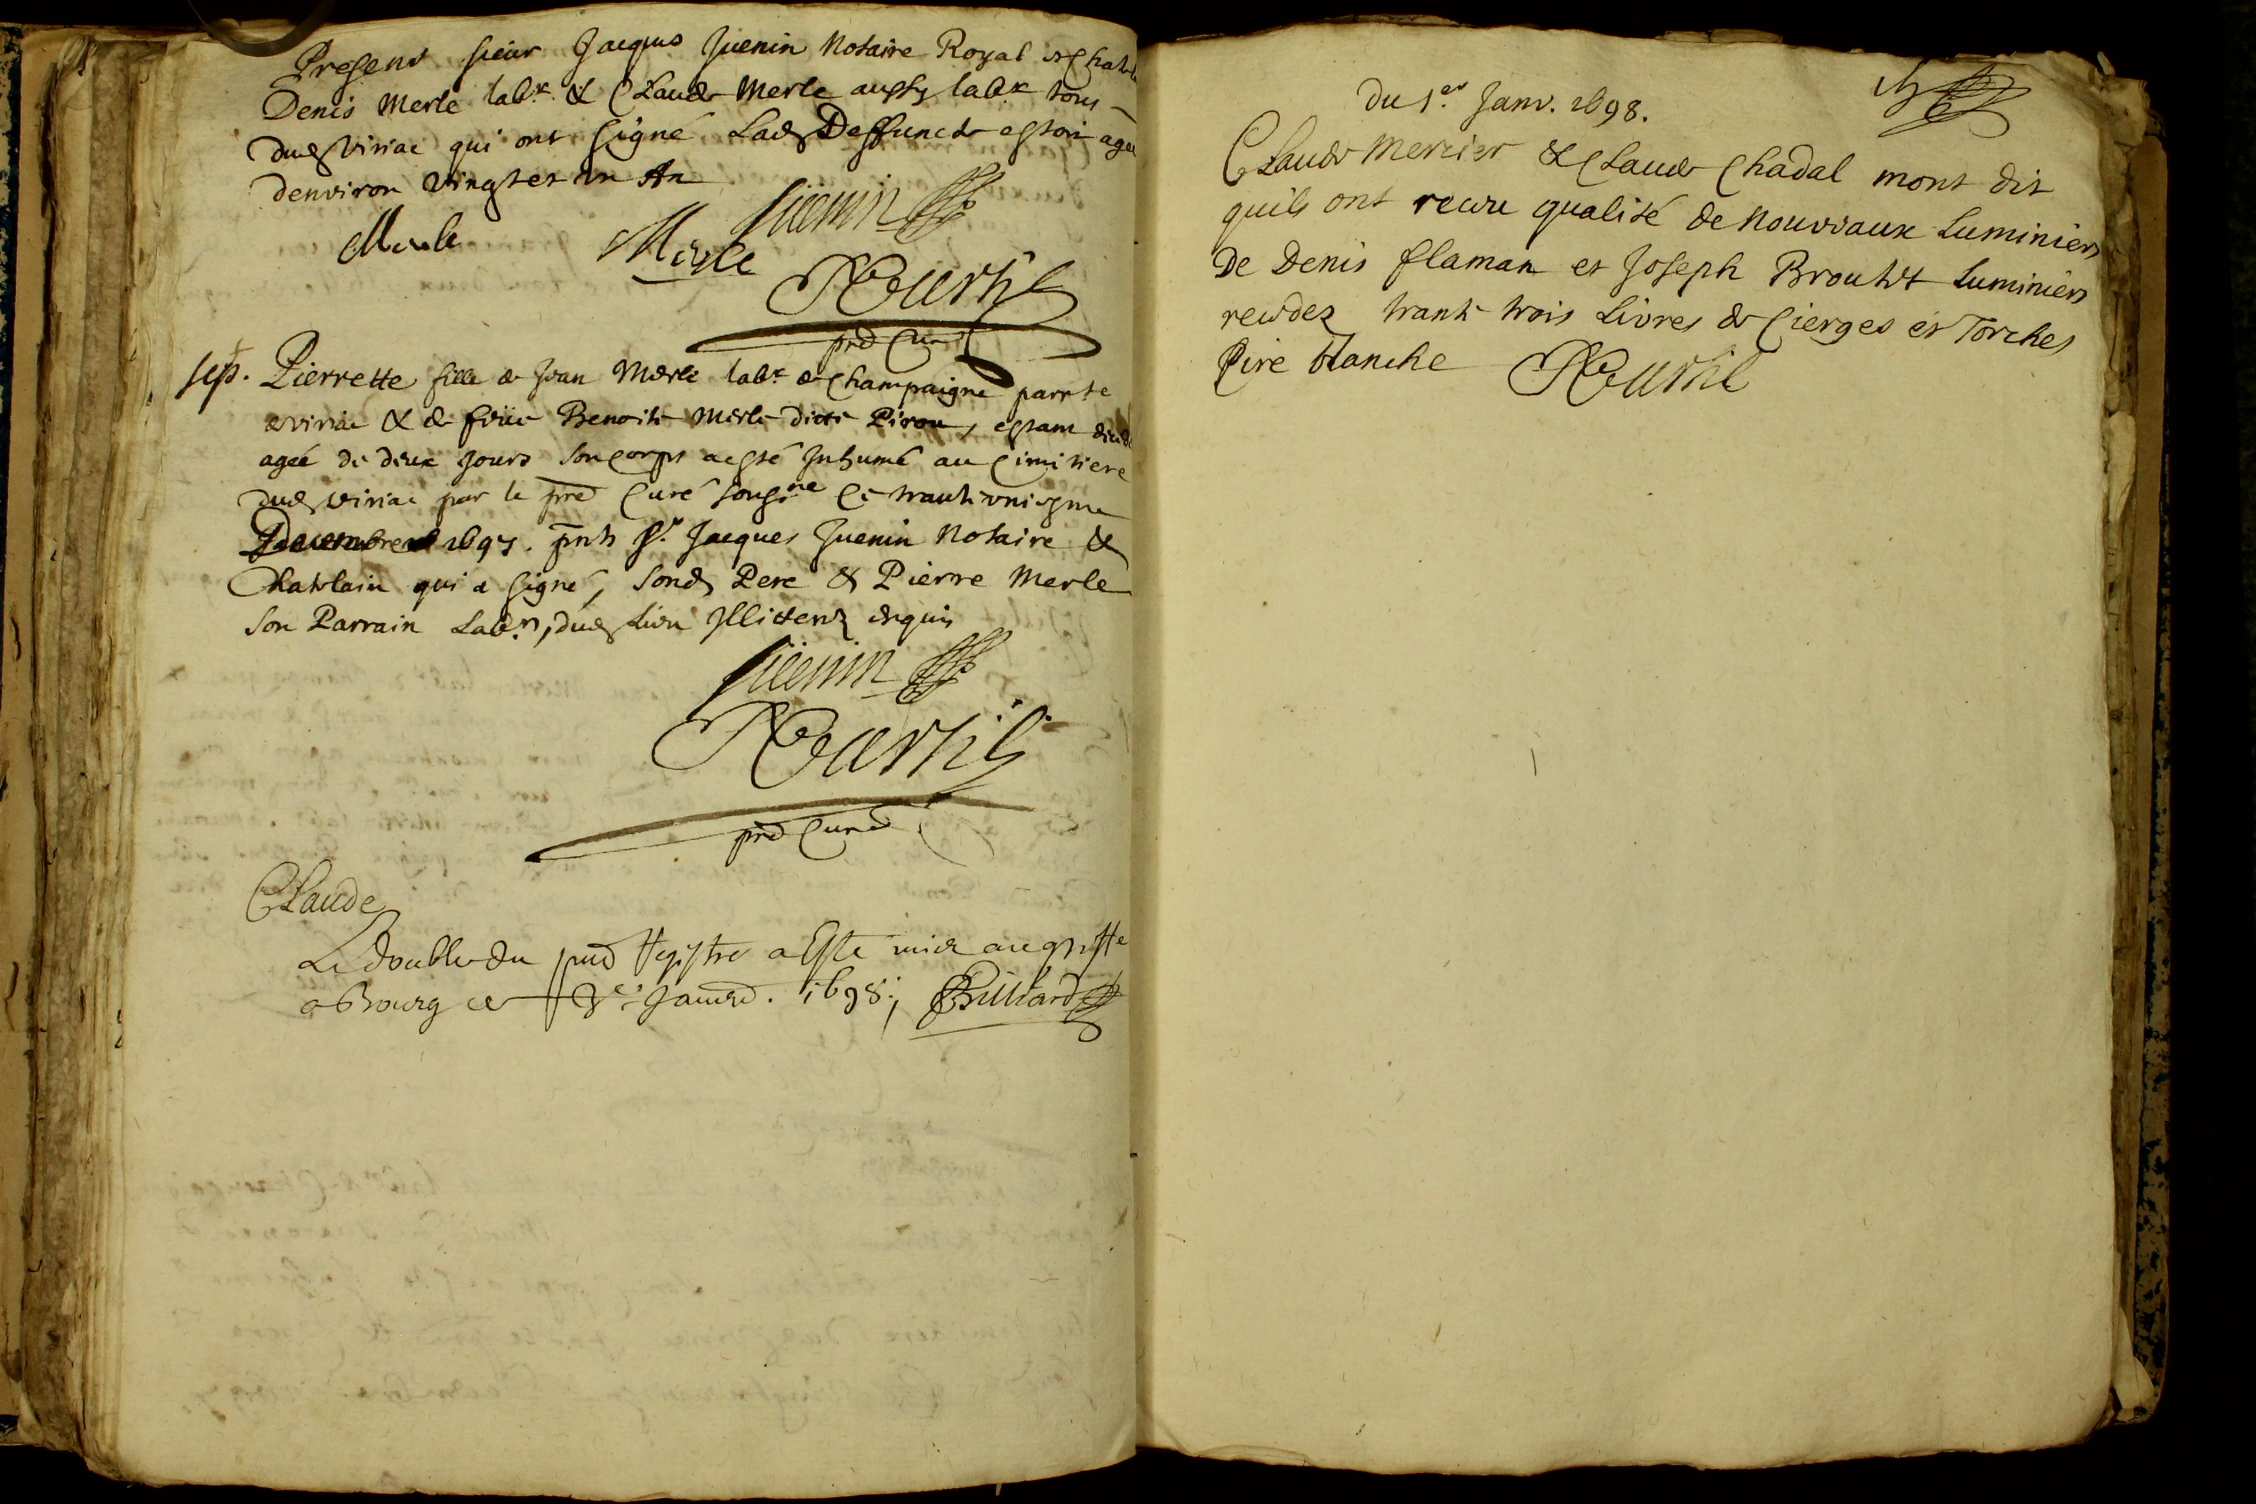 Present sieur Jacques Juenin Notaire Royal et Chatel
Denis Merle labr. & Claude Merle aussy labr. tous
dud Viriac qui ont signé, Lad Deffuncte estoit agee
denviron vingt et un An
Merle Merle Jüenin
pnt Curé
sept. Pierrette fille de Jean Merle labr. de Champaigne parrsse
de Viriac & de feüe Benoite Merle ditte Piron, estant decede
ageé de deux jours son corps a esté Inhumé au Cimitiere
dud Viriac par le pnt Curé sousné Ce trante uniesme
Decembre 1697. pnts sr. Jacques Juenin Notaire &
Chatelain qui a signé, sond Pere & Pierre Merle
Son Parrain Labrs, dud Lieu Illitterez enquis
Jüenin
pnt Curé
Claude
Le double du pnt Registre a Esté mis au greffe
a Bourg ce Janvr. 1698;
du 1er Janv. 1698.
Claude Mercier & Claude Chadal mont dit
quils ont receu qualité de Nouveaux Luminiers
De Denis flaman et Joseph Brouhet Luminiers
recedez trante trois Livres de Cierges et Torches
Cire blanche